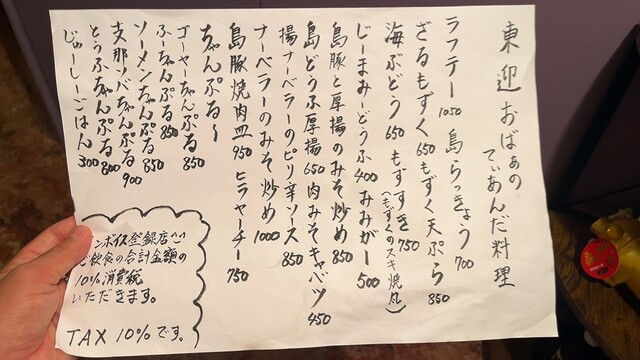 東迎おばぁの
てぃあんだ料理
ラフテー 1050 島らっきょう 700
ざるもずく 650 もずく天ぷら 850
海ぶどう 650 もずすき 750
(もずくのスキ焼風)
じーまみーどうふ 400 みみがー 500
島豚と厚揚のみそ炒め 850
島どうふ厚揚 650 肉みそキャベツ 450
揚ナーベラーのピリ辛ソース 850
ナーベラーのみそ炒め 1000
島豚焼肉皿 950 ヒラヤーチー 750
ちゃんぷる〜
ゴーヤーちゃんぷる 850
ふーちゃんぷる 850
ソーメンちゃんぷる 850
支那ソバちゃんぷる 900
とうふちゃんぷる 800
じゅーしーごはん 300
ンボイス登録店
ご飲食の合計金額の
10%消費税
いただきます。
TAX 10% です。